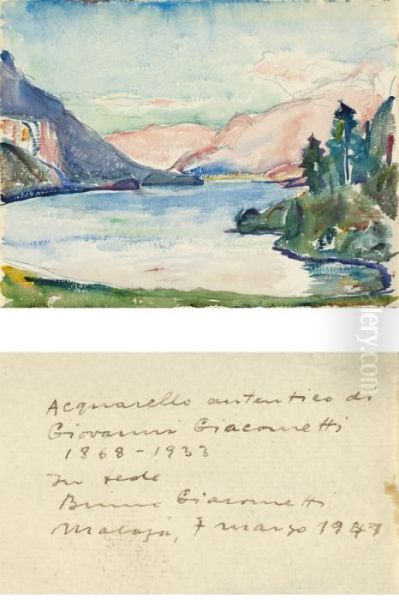 Acquarello autentico di
Giovanni Giacometti
1868-1933
In fede
Bruno Giacometti
Maloja, 7 marzo